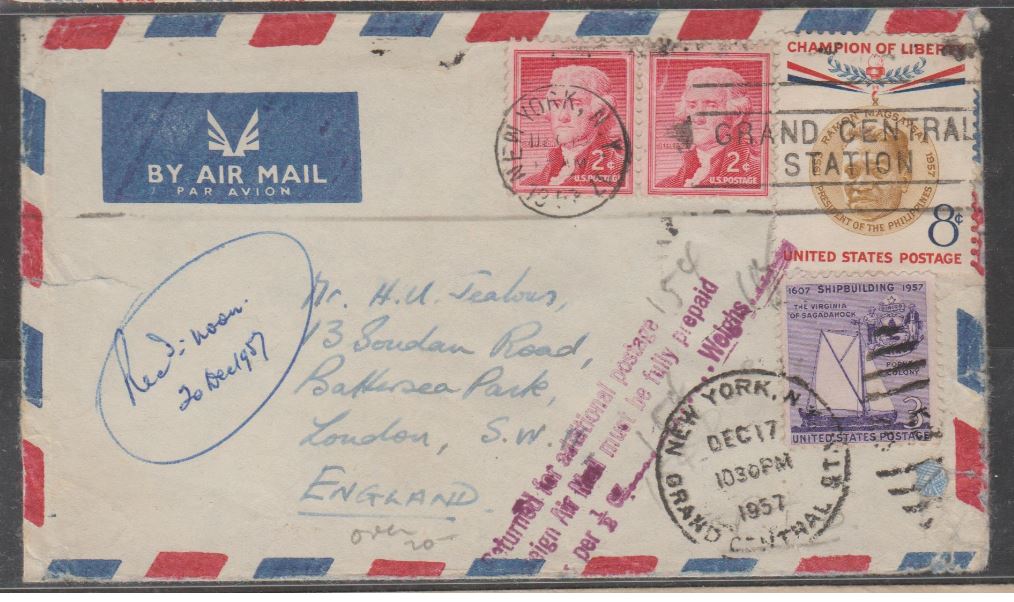 BY AIR MAIL
PAR AVION
NEW YORK, N.Y.
2¢
U.S. POSTAGE
2¢
U.S. POSTAGE
GRAND CENTRAL
STATION
CHAMPION OF LIBERTY
RAMON MAGSAYSAY
1957
PRESIDENT OF THE PHILIPPINES
8¢
UNITED STATES POSTAGE
1607 SHIPBUILDING 1957
THE VIRGINIA
OF SAGADAHOCK
COLONY
3¢
UNITED STATES POSTAGE
Rec'd: noon.
20 Dec 1957
Mr. H.U. Jealous,
13 Soudan Road,
Battersea Park,
London, S.W.
ENGLAND
over
Returned for additional postage 15¢
Foreign Air Mail must be fully prepaid
per ½ Weighs
NEW YORK, N.Y.
DEC 17
1030PM
1957
GRAND CENTRAL STA.